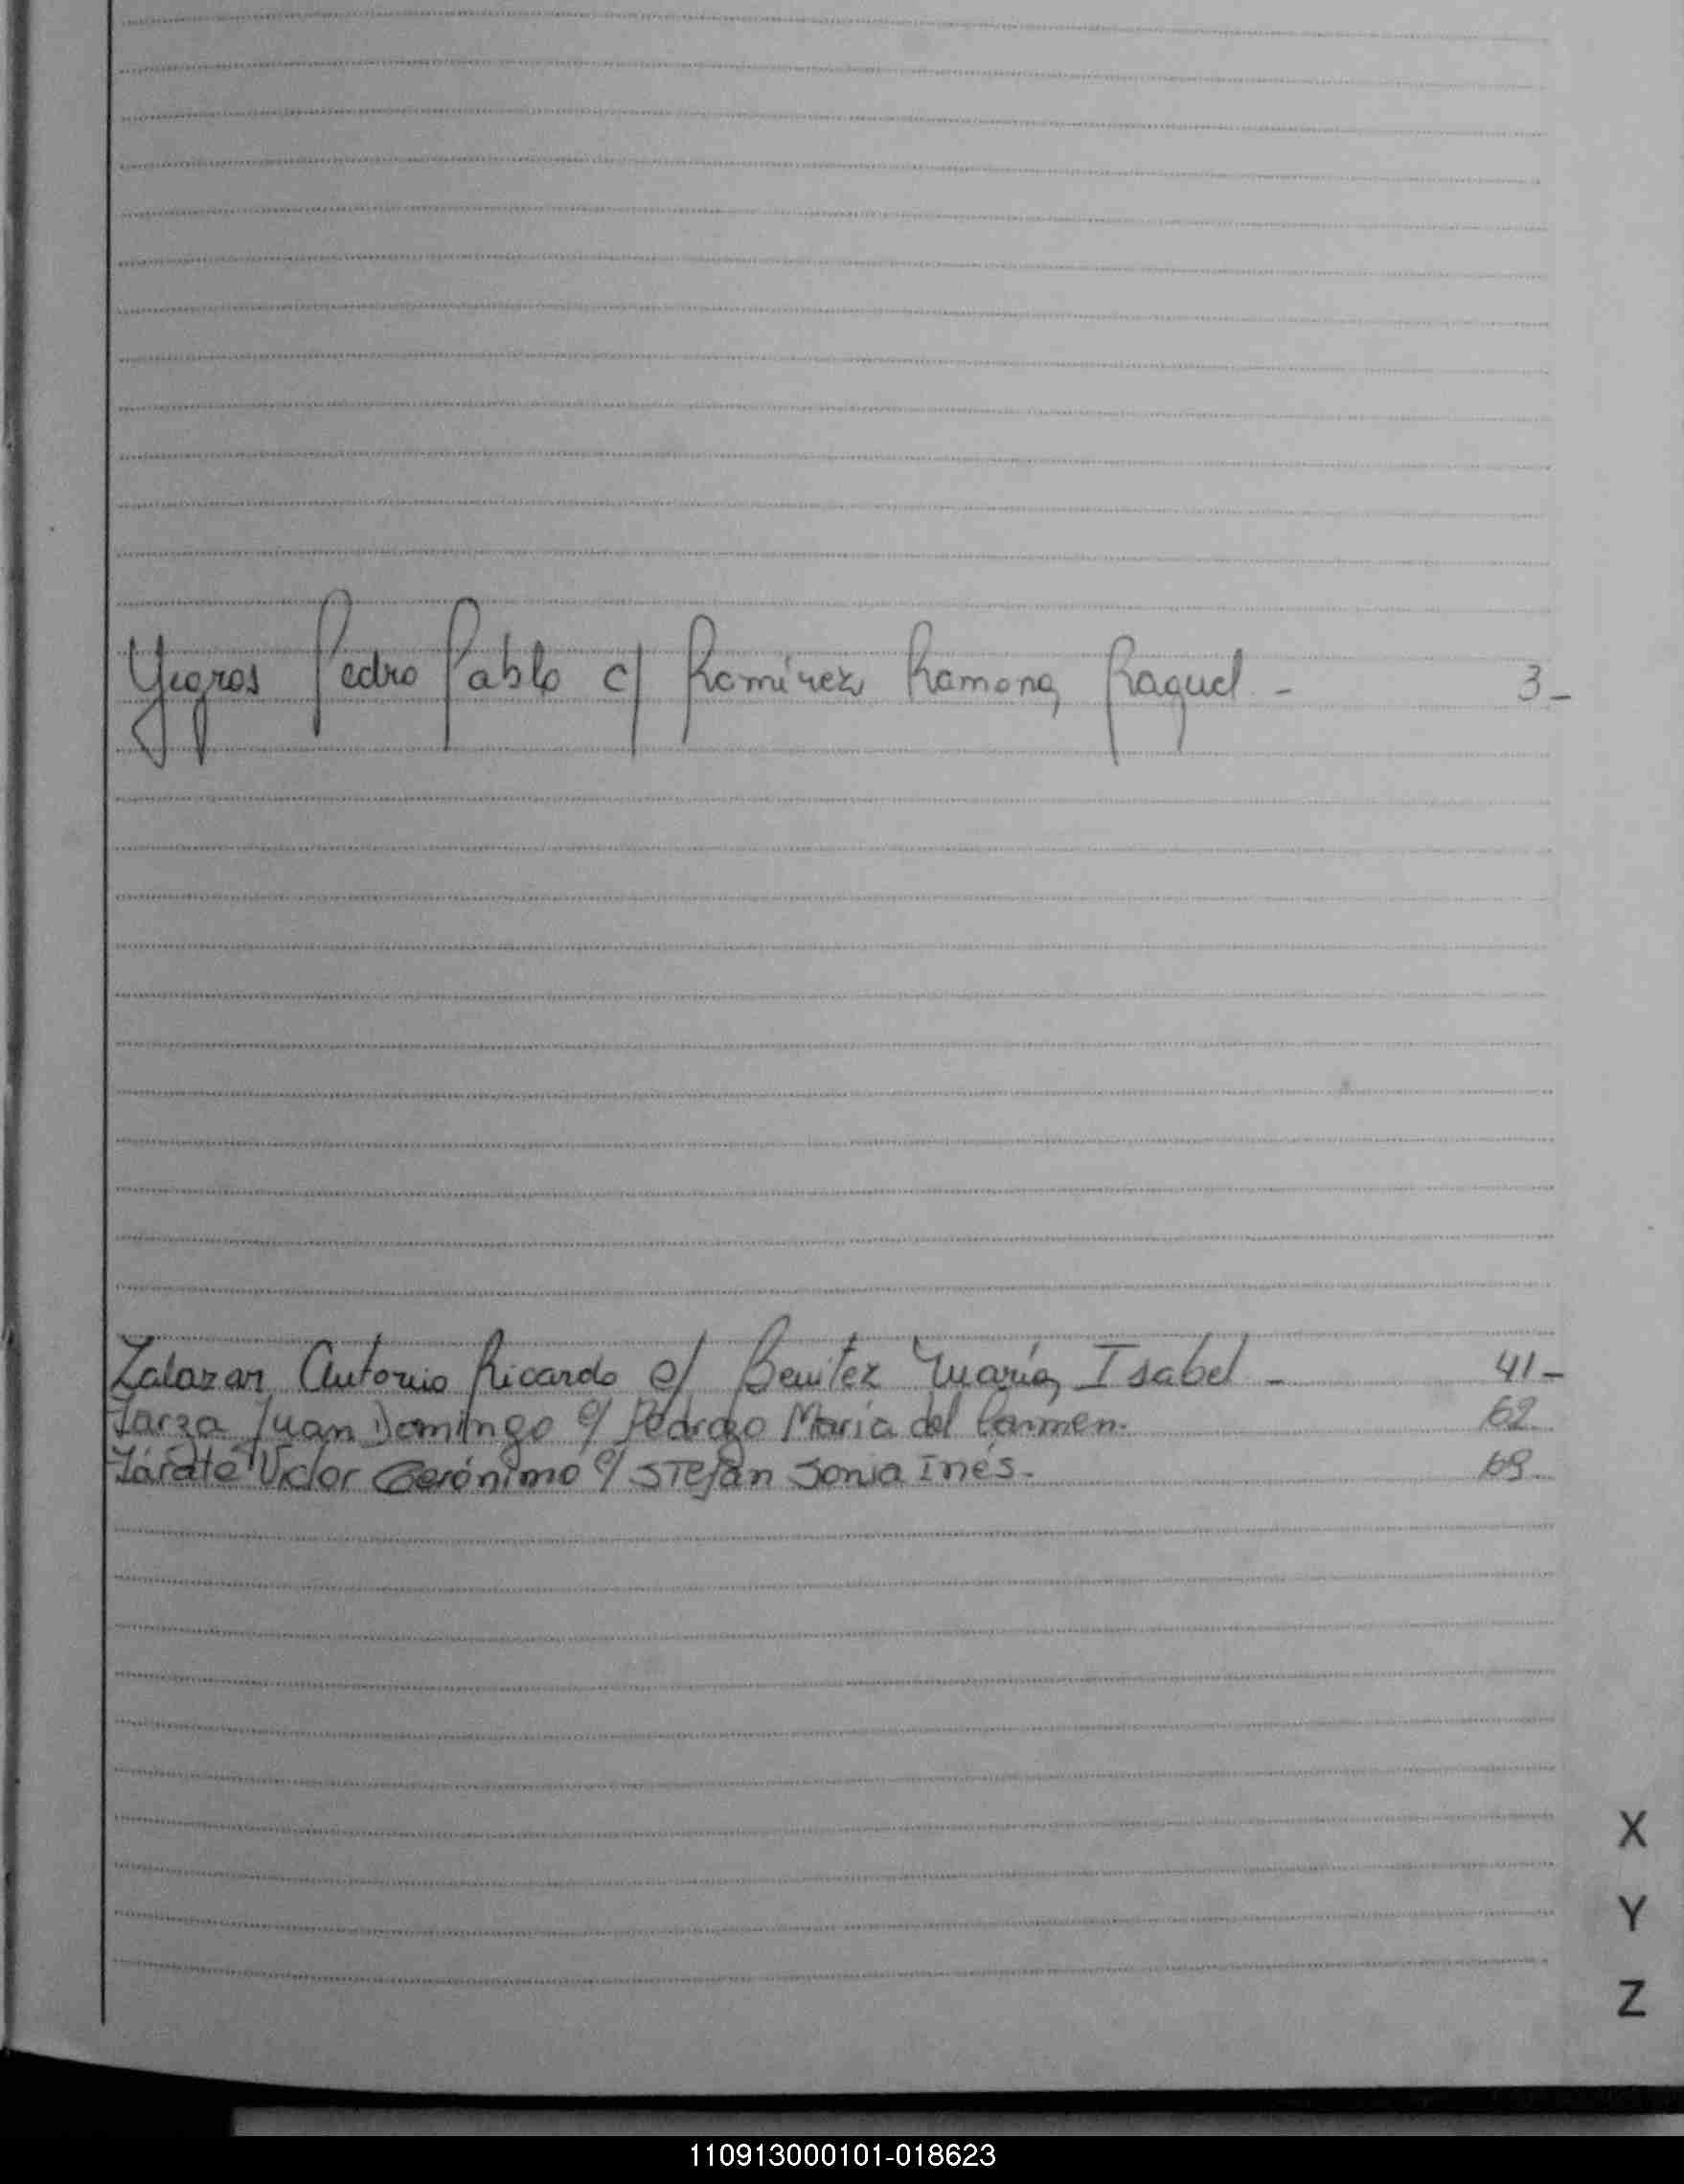 Yegros Pedro Pablo c/ Ramírez Ramona Raquel - 3-
Zalazar Antonio Ricardo c/ Benítez María Isabel - 41-
Zarza Juan Domingo c/ Pedrozo María del Carmen. 62
Zárate Victor Gerónimo c/ Stefan Sonia Inés. 69.
X
Y
Z
110913000101-018623